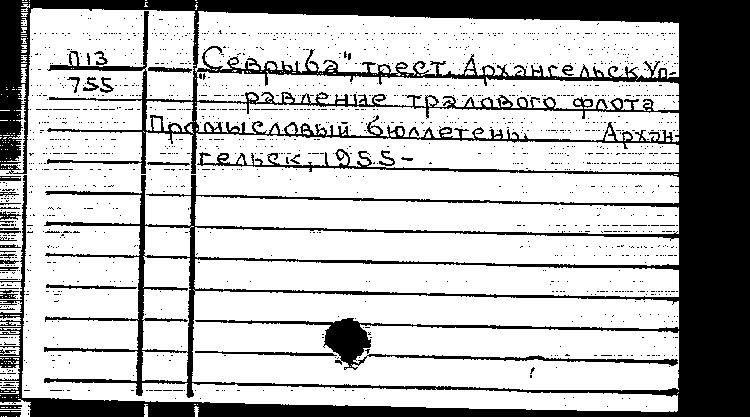 П13 "Севрыба", трест. Архангельск. Уп-
755 равление тралового флота
Промысловый бюллетень. Архан-
гельск, 1955-